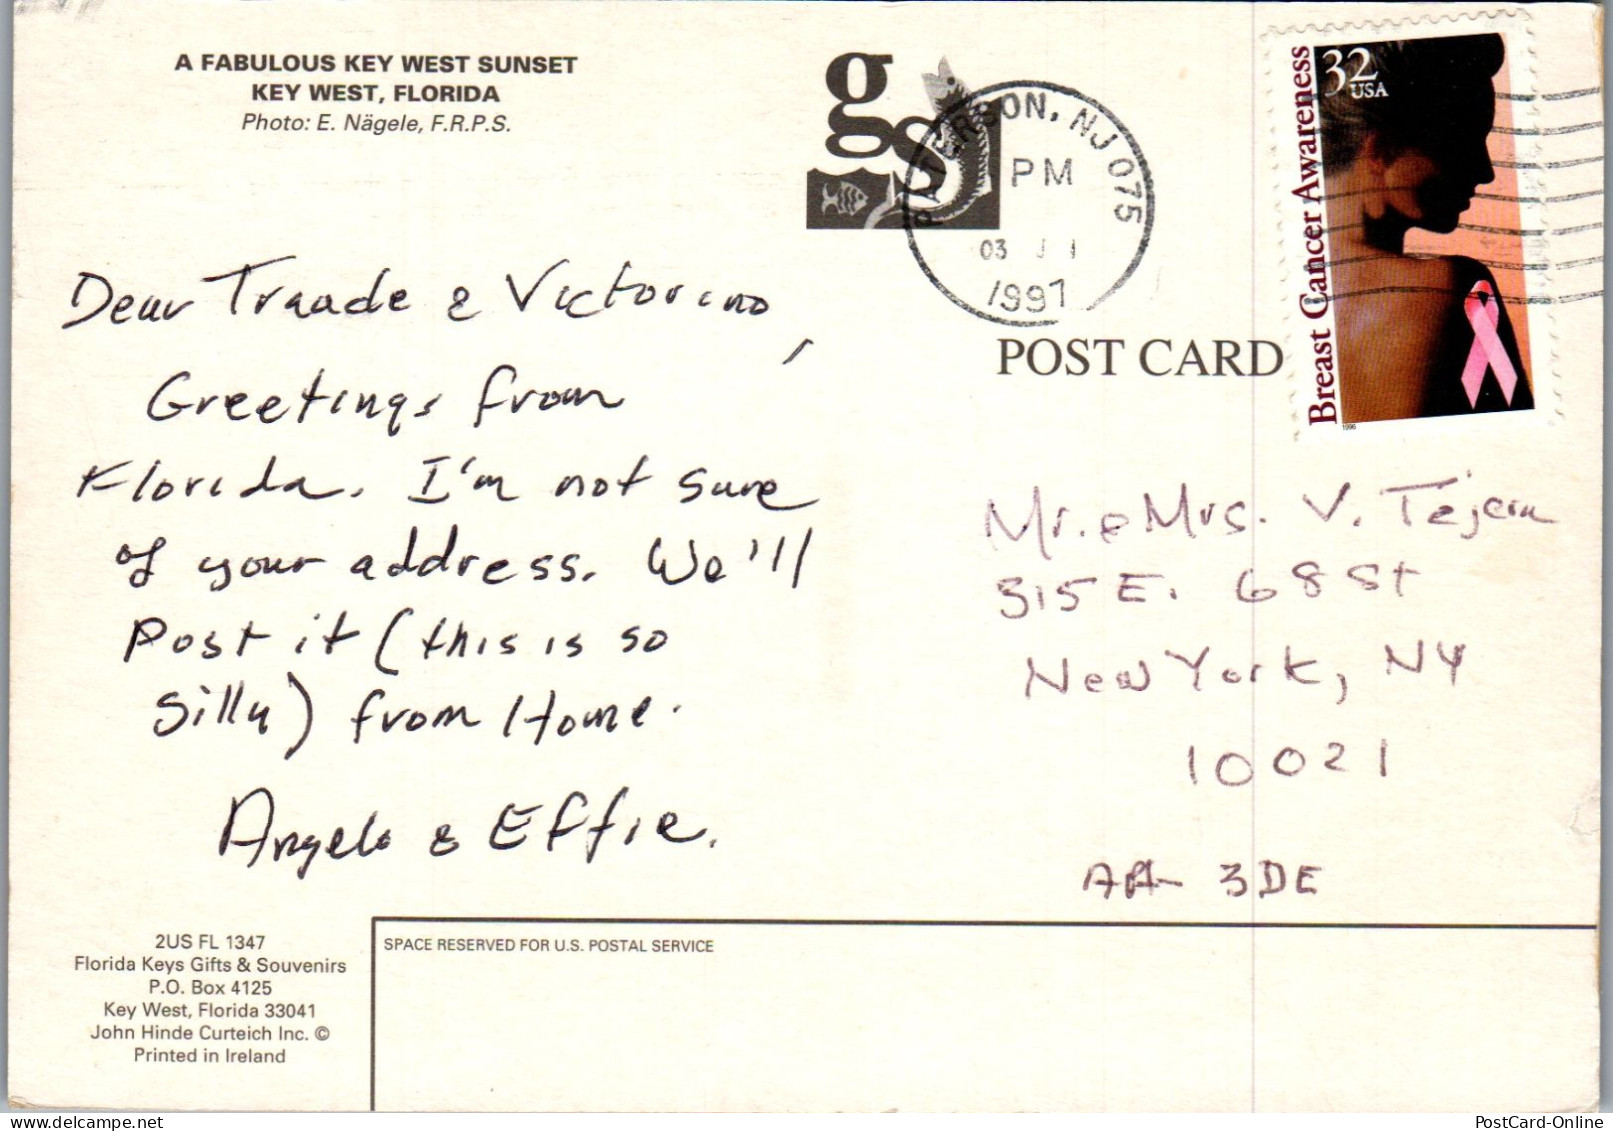 A FABULOUS KEY WEST SUNSET
KEY WEST, FLORIDA
Photo: E. Nägele, F.R.P.S.
gs
PATERSON, NJ 075
PM
03
1997
32
USA
Breast Cancer Awareness
1996
POST CARD
Dear Traade & Victorino,
Greetings from
Florida. I'm not sure
of your address. We'll
Post it (this is so
silly) from Home.
Angelo & Effie.
Mr. & Mrs. V. Tejera
315 E. 68 St
New York, NY
10021
3DE
2US FL 1347
Florida Keys Gifts & Souvenirs
P.O. Box 4125
Key West, Florida 33041
John Hinde Curteich Inc. ©
Printed in Ireland
SPACE RESERVED FOR U.S. POSTAL SERVICE
PostCard-Online